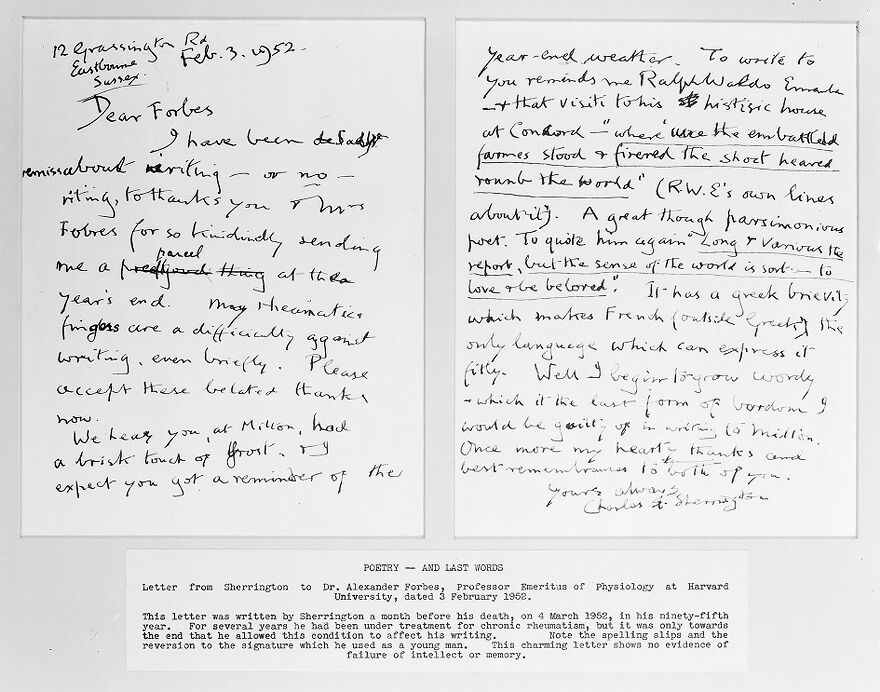 12 Grassington Rd
Eastbourne
Sussex.
Feb. 3. 1952.
Dear Forbes
I have been
remiss about writing — or no —
riting, to thanks you & Mrs
Fobres for so kindindly sending
parcel
me a at the
year's end. may rheamatics
fingers are a difficially against
writing, even briefly. Please
accept these belated thanks
now.
We hear you, at Milton, had
a brisk touch of frost. & I
expect you got a reminder of the
year-end weather. To write to
you reminds me Ralph Waldo
—& that visiti to his histisic house
at Concord —"where the embattled
farmes stood & firered the shoct heared
rounb the world" (R.W.E's own lines
about it). A great though parsimonious
poet. To quote him again "Long & various the
report, but the sense of the world is sort — to
love & be belored". It has a greek brievity
which makes French (outside Greek) the
only language which can express it
fitly. Well I begin to grow wordy
- which it the last form of bordom I
would be guilty of in writing to Milton.
Once more my hearty thanks and
best remembrances to both of you.
Yours always
Charles S. Sherrington
POETRY — AND LAST WORDS
Letter from Sherrington to Dr. Alexander Forbes, Professor Emeritus of Physiology at Harvard
University, dated 3 February 1952.
This letter was written by Sherrington a month before his death, on 4 March 1952, in his ninety-fifth
year. For several years he had been under treatment for chronic rheumatism, but it was only towards
the end that he allowed this condition to affect his writing. Note the spelling slips and the
reversion to the signature which he used as a young man. This charming letter shows no evidence of
failure of intellect or memory.